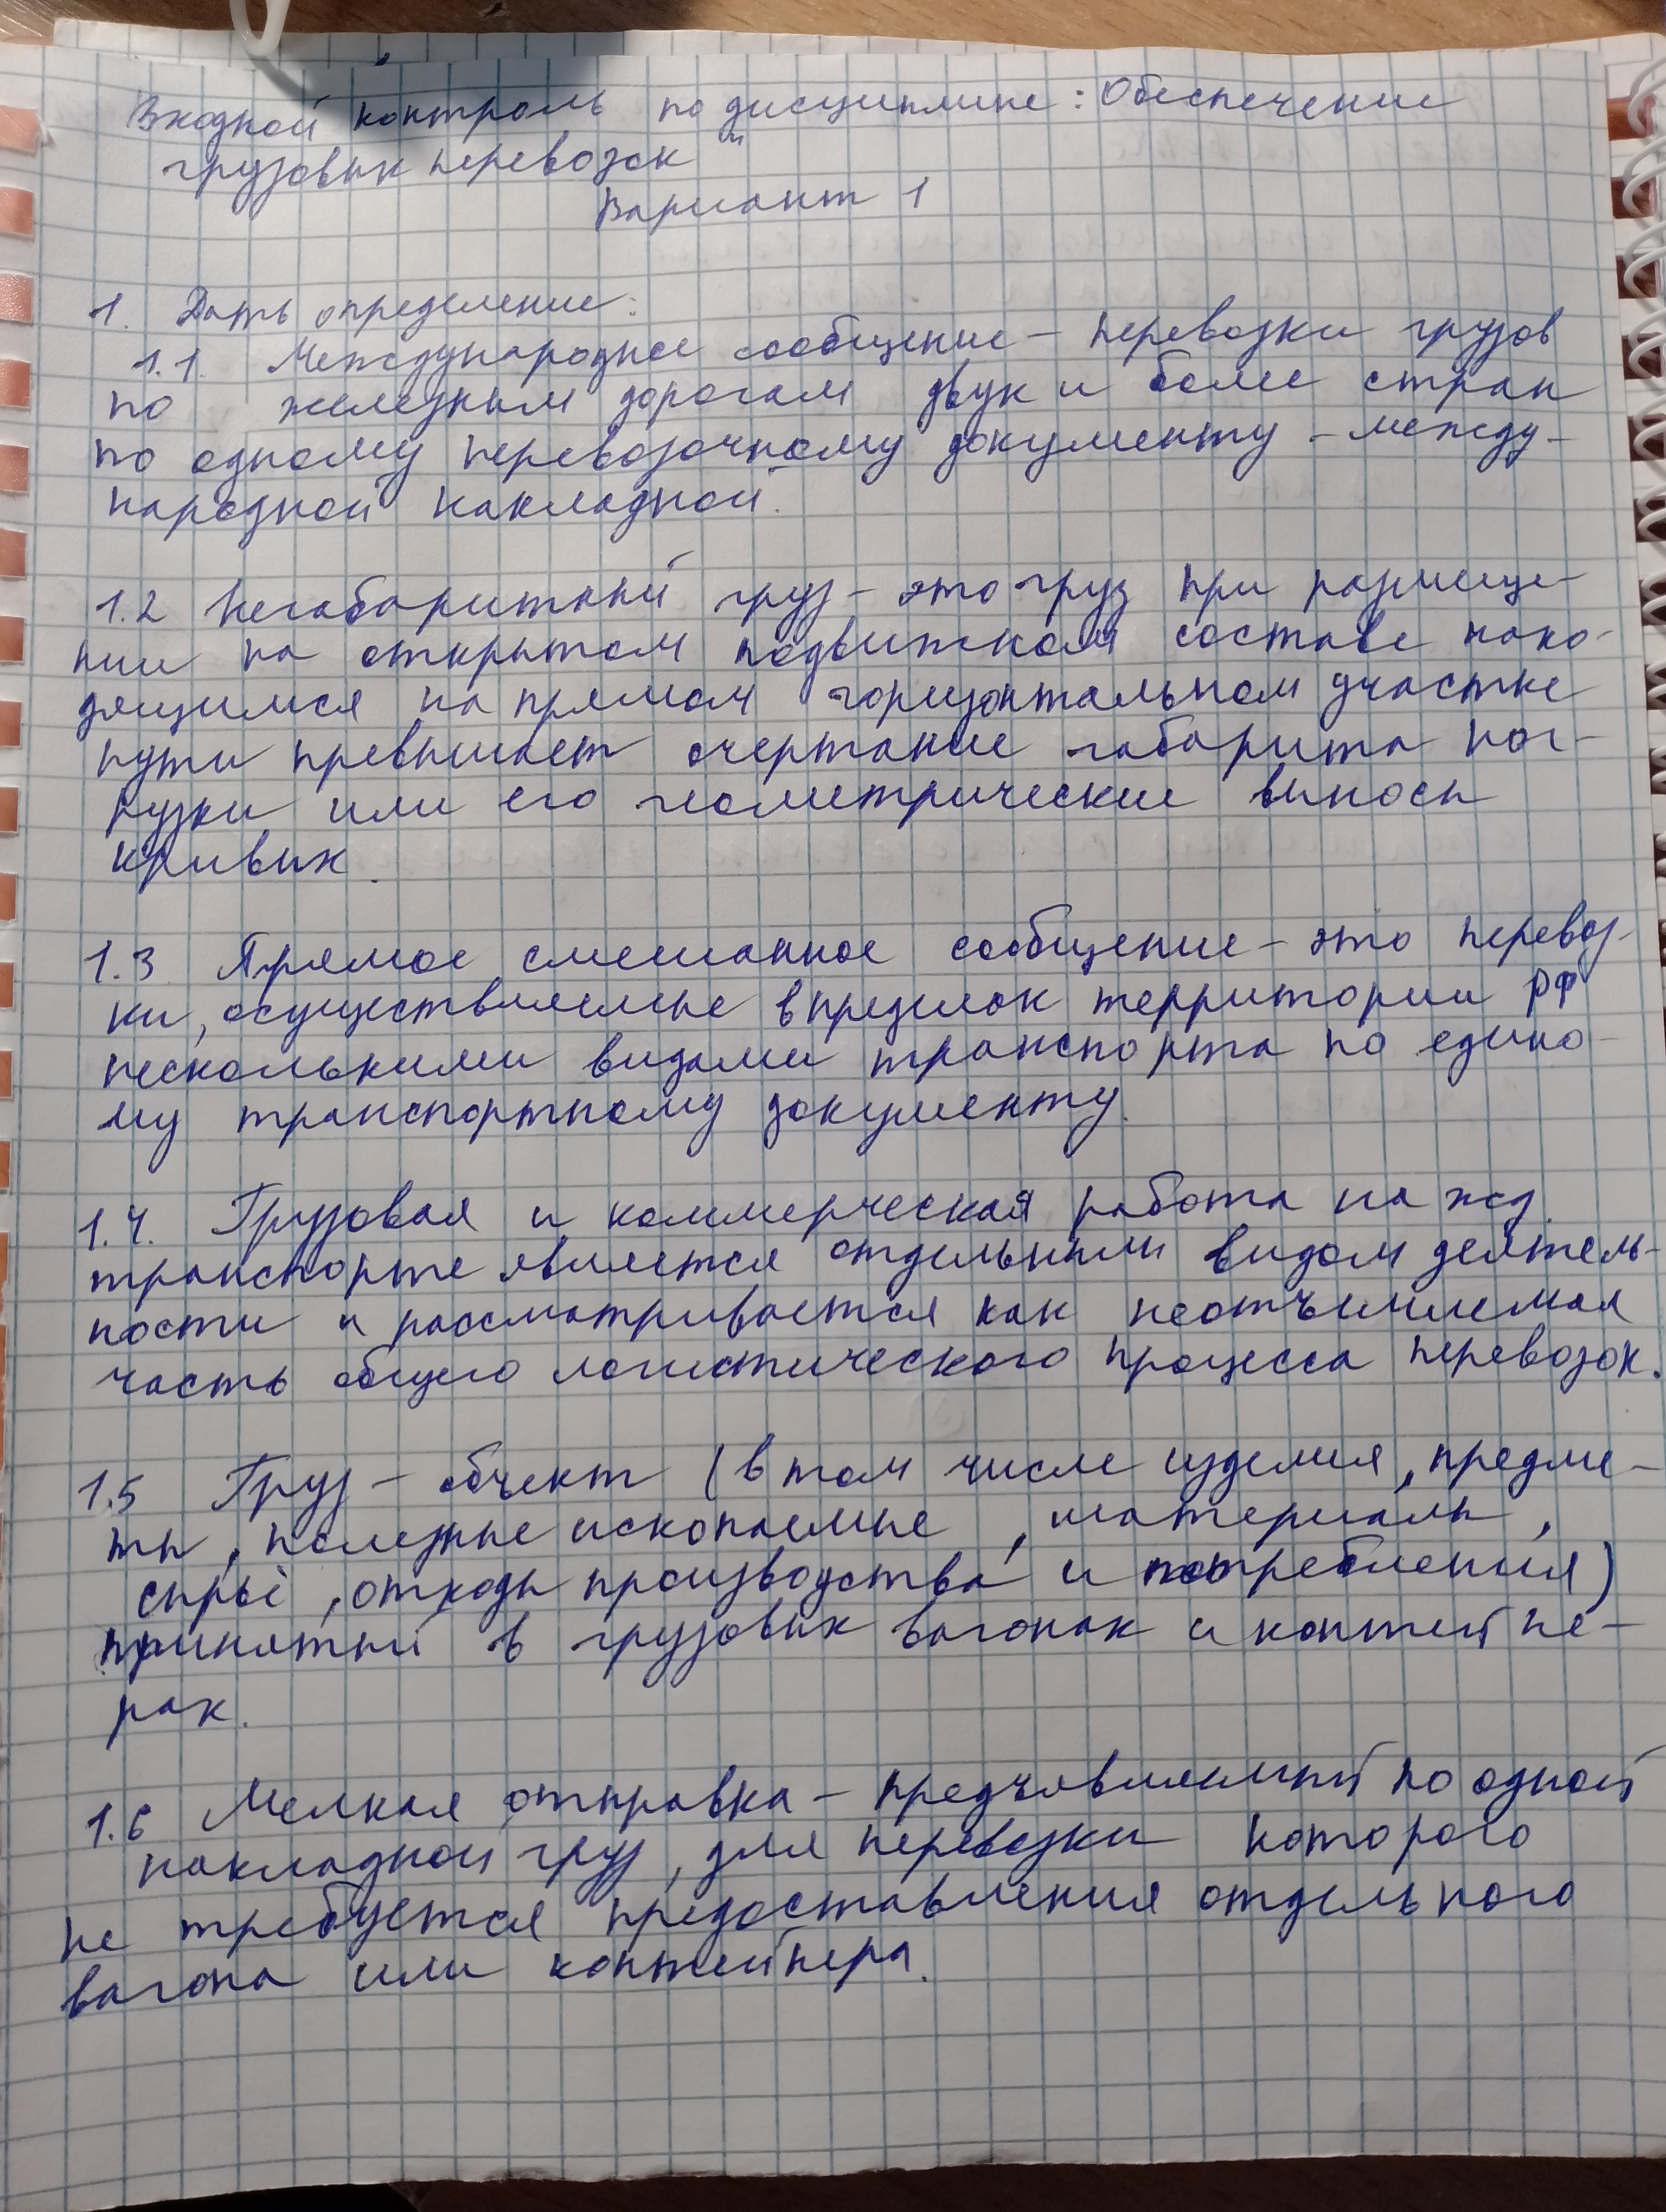 Входной контроль по дисциплине: Обеспечение
грузовых перевозок"
Вариант 1
1. Дать определение:
1.1. Международное сообщение – перевозки грузов
по железным дорогам двух и более стран
по одному перевозочному документу – между-
народной накладной.
1.2 Негабаритный груз – это груз при размеще-
нии на открытом подвижном составе нахо-
дящимся на прямом горизонтальном участке
пути превышает очертание габарита пог-
рузки или его геометрические выносы
кривых.
1.3 Прямое смешанное сообщение – это перевоз-
ки, осуществляемые в пределах территории РФ
несколькими видами транспорта по едино-
му транспортному документу.
1.4. Грузовая и коммерческая работа на жд.
транспорте является отдельным видом деятель-
ности и рассматривается как неотъемлемая
часть общего логистического процесса перевозок.
1.5 Груз – объект (в том числе изделия, предме-
ты, полезные ископаемые, материалы,
сырьё, отходы производства и потребления)
принятый в грузовых вагонах и контейне-
рах.
1.6 Мелкая отправка – предъявляемый по одной
накладной груз, для перевозки которого
не требуется предоставления отдельного
вагона или контейнера.